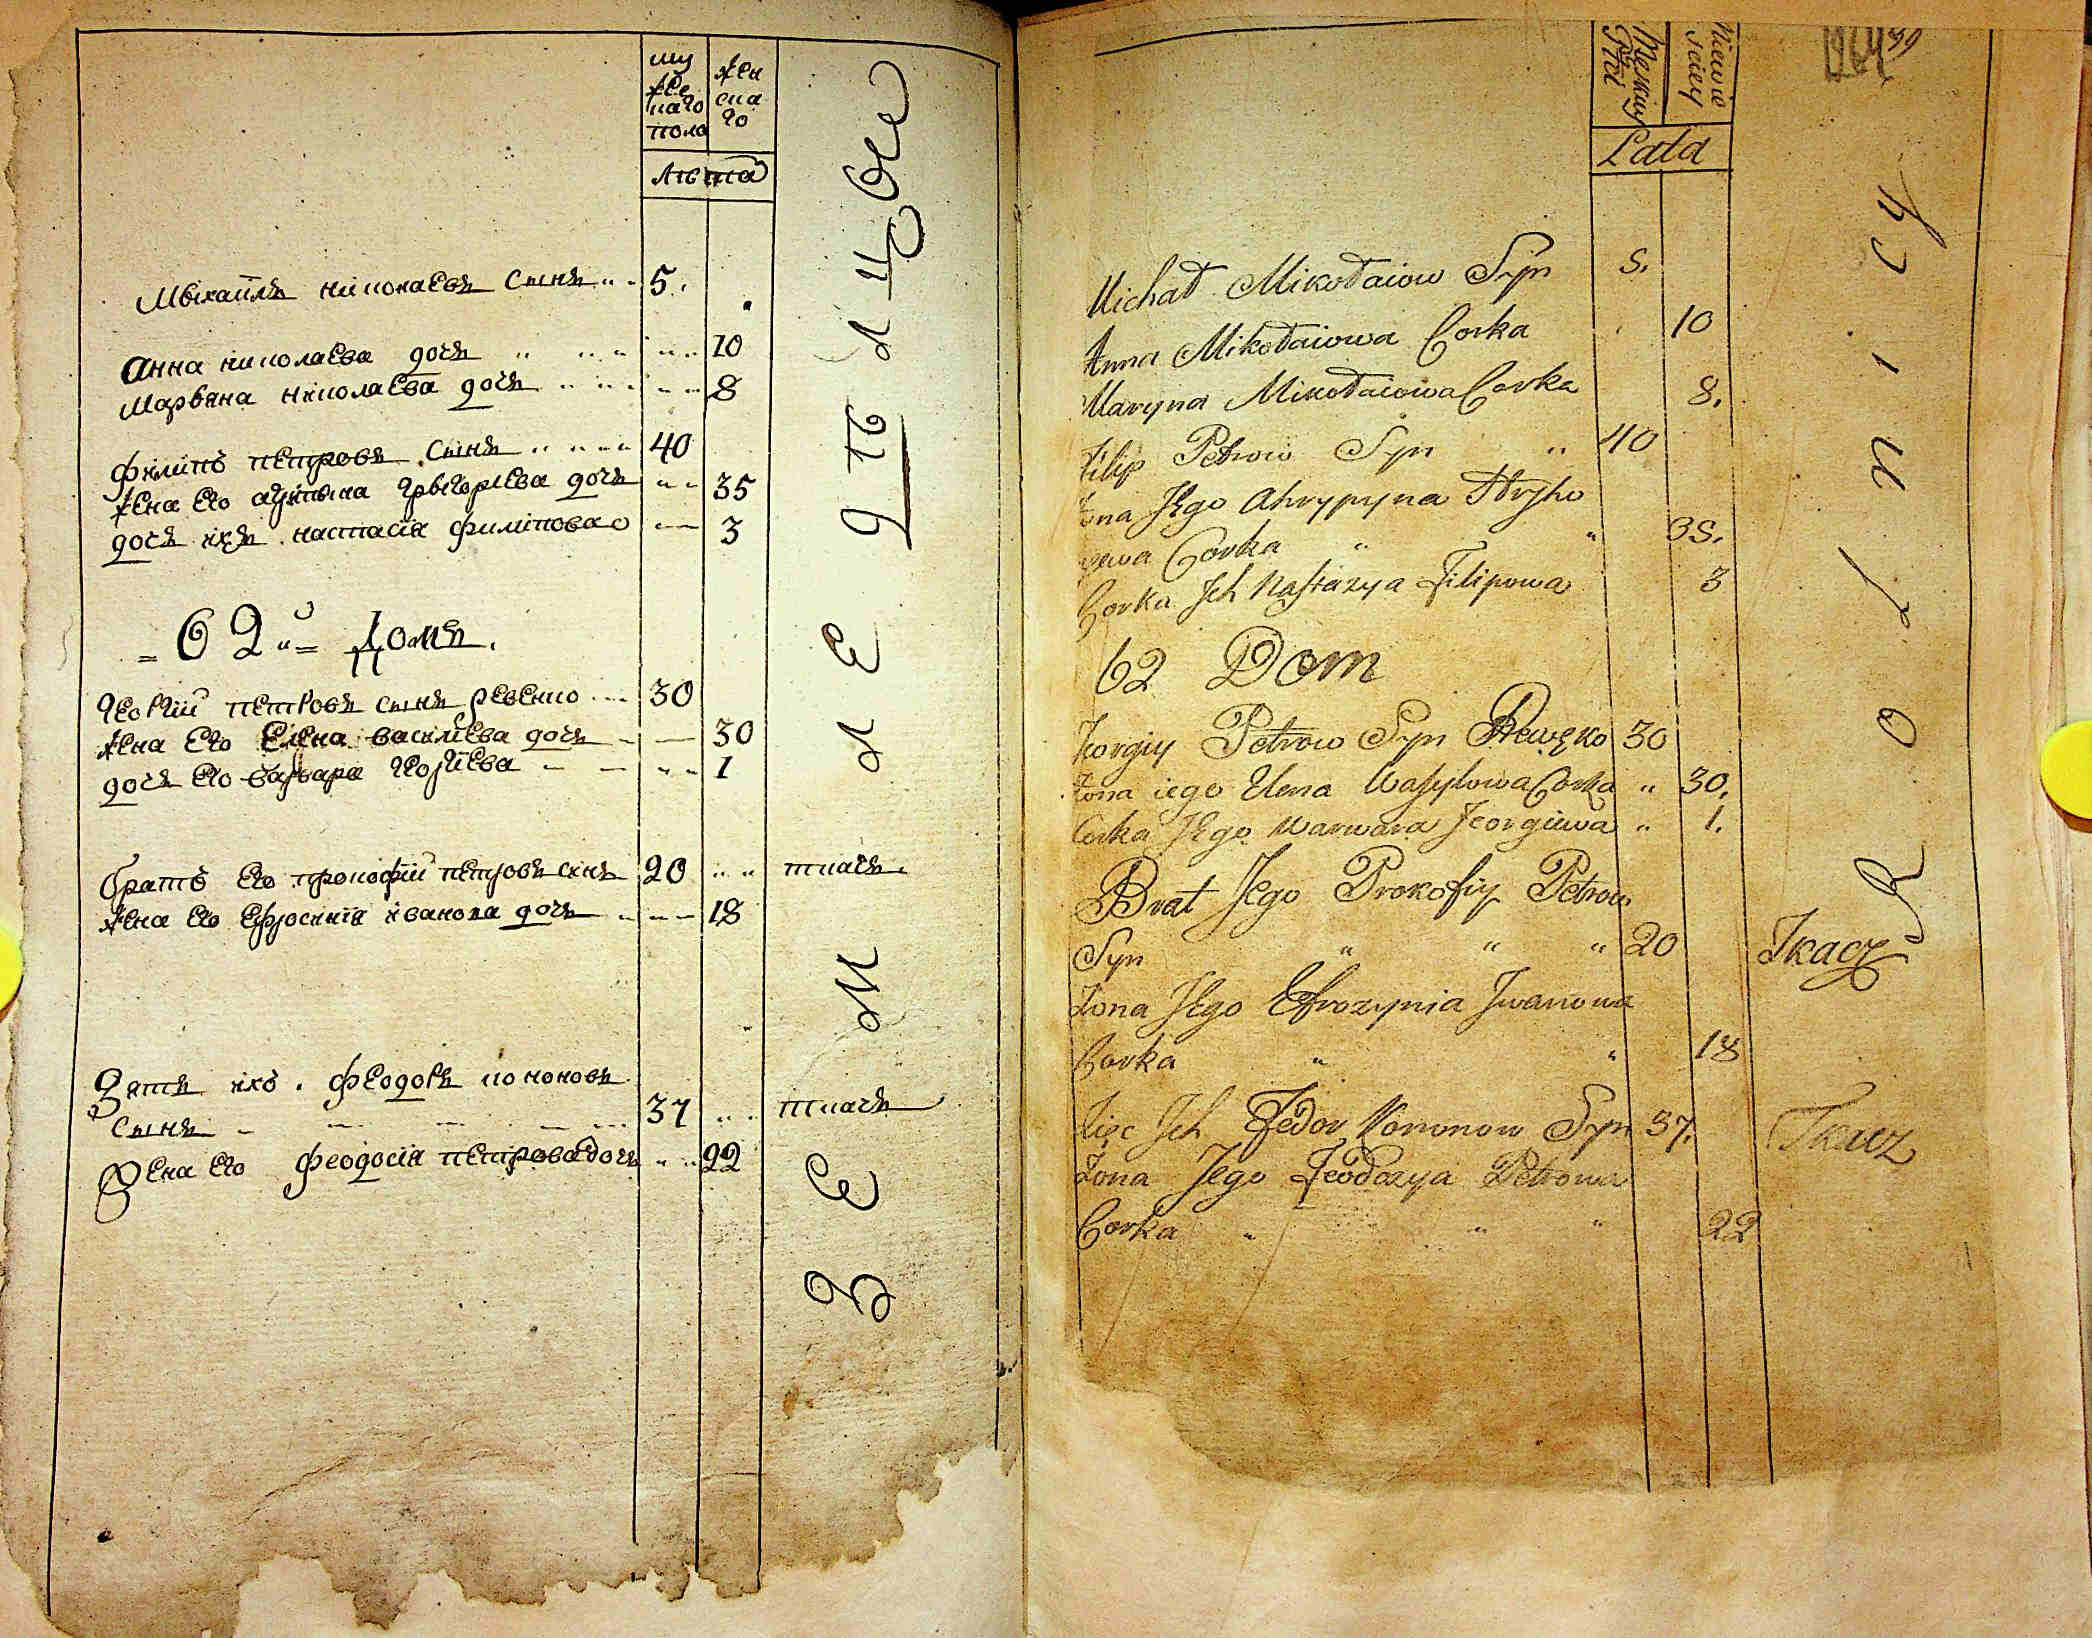 му
же
наго
пола
жен
ска
го
лѣта
Мыхаилъ николаевъ сынъ 5.
анна николаева дочь 10
Марвѣна николаева дочь 8
филипъ петровъ сынъ 40
жена его агрипына грыгорлева дочь 35
дочь ихъ настасія филипова 3
62й домъ.
Георгій петровъ сынъ ревенко 30
жена его Елена васильева дочь 30
дочь его варвара георгіева 1
братъ его прокофій петровъ сынъ 20 ткачъ
жена его ефросинія иванова дочь 18
Зять ихъ. феодоръ кононовъ
сынъ 37 ткачъ
жена его феодосія петрова дочь 22
земледѣлцы
Męskiey
Płci
Niewie
sciey
Lata
39
Michał Mikołaiow Syn 5.
Anna Mikołaiowa Corka 10
Maryna Mikołaiowa Corka 8.
Filip Petrow Syn 40
Żona Jego Ahrypyna Hryho
rjewa Corka 35.
Corka Jch Nastazya Filipowa 3
62 Dom
Jeorgiy Petrow Syn Rewęko 30
Żona iego Elena Wasylowa Corka 30.
Corka Jego Warwara Jeorgiiwa 1.
Brat Jego Prokofiy Petrow
Syn 20 Tkacz
Żona Jego Efrozynia Jwanowa
Corka 18
Zięc Jch Fedor Kononow Syn 37. Tkacz
Żona Jego Feodozya Petrowa
Corka 22
Rolnicy